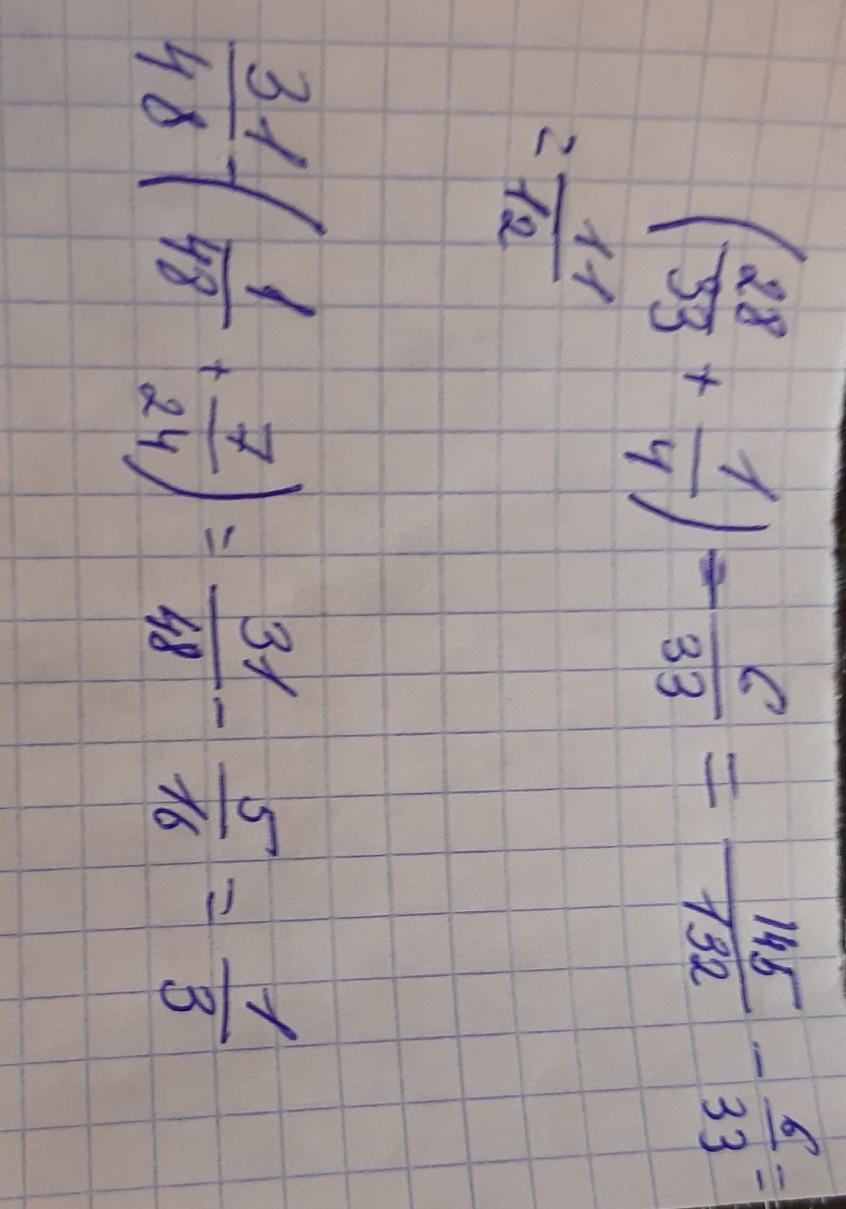 (28/33 + 1/4) - 6/33 = 145/132 - 6/33 =
= 11/12
31/48 - (1/48 + 7/24) = 31/48 - 5/16 = 1/3